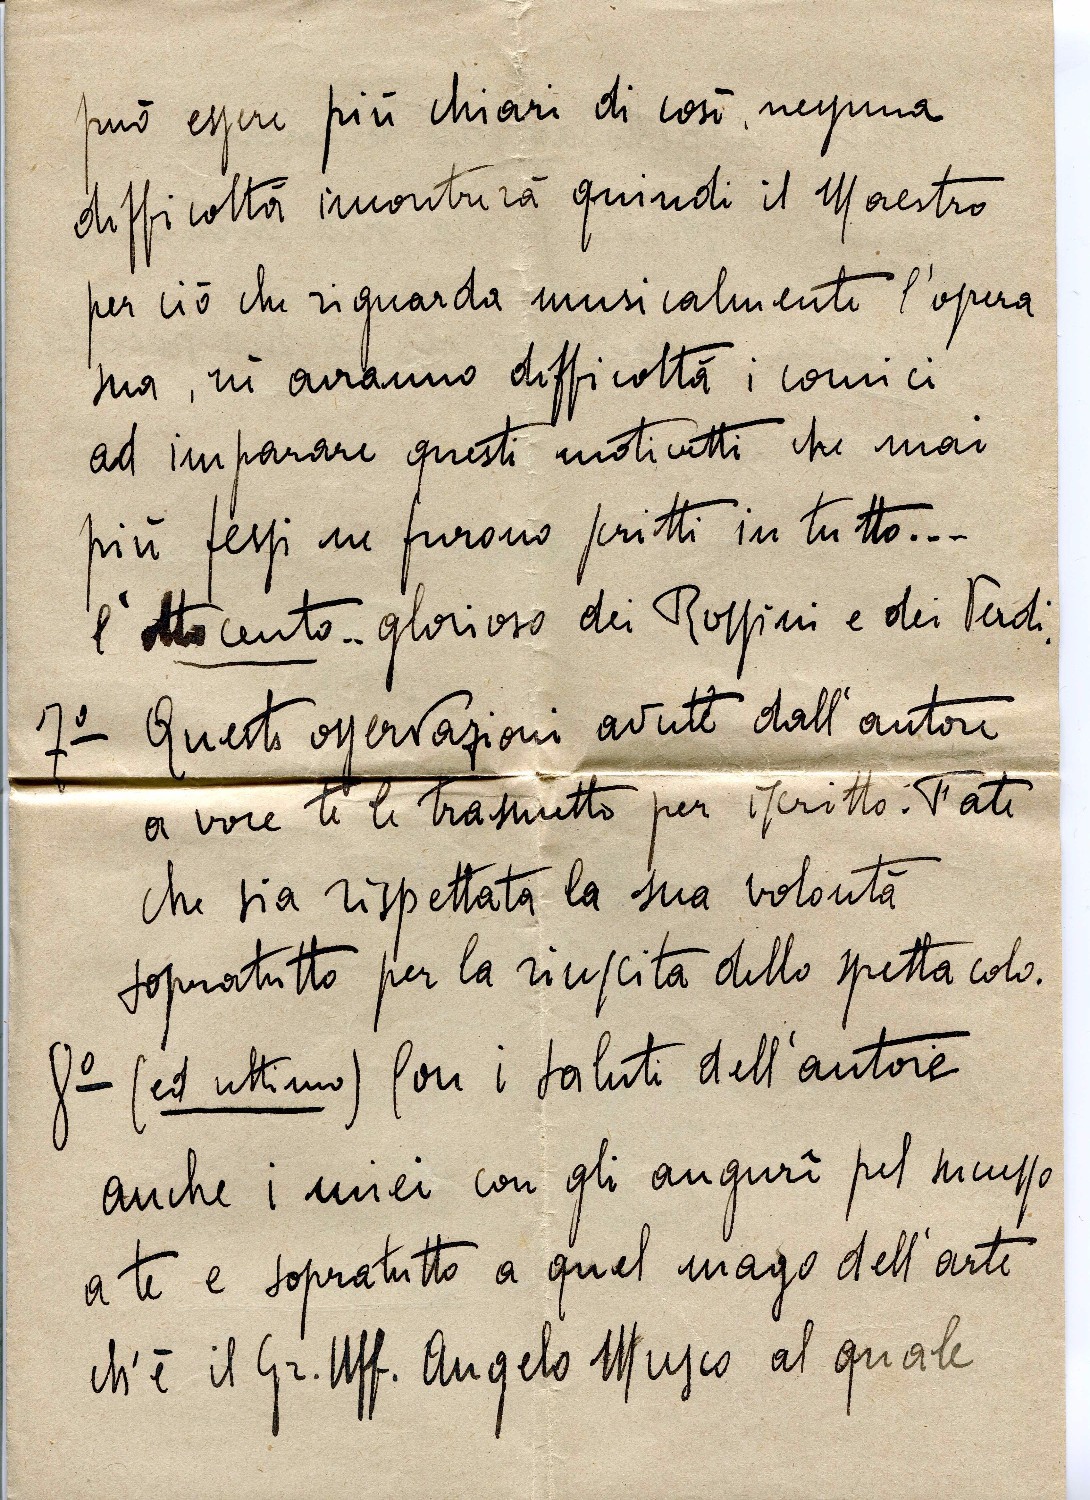 può essere più chiari di così, nessuna
difficoltà incontrerà quindi il Maestro
per ciò che riguarda musicalmente l'opera
sua, nè avranno difficoltà i comici
ad imparare questi motivetti che mai
più fessi ne furono scritti in tutto...
l'ottocento.. glorioso dei Rossini e dei Verdi.
7º Queste osservazioni avute dall'autore
a voce te le trasmetto per iscritto: Fate
che sia rispettata la sua volontà
sopratutto per la riuscita dello spettacolo.
8º (ed ultimo) Con i saluti dell'autore
anche i miei con gli augurî pel successo
a te e sopratutto a quel mago dell'arte
ch'è il Gr. Uff. Angelo Musco al quale